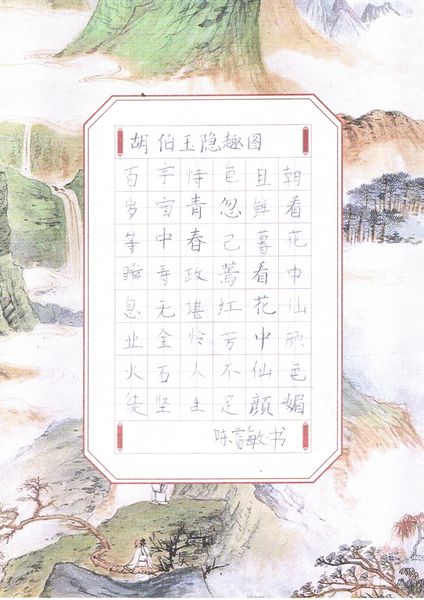 胡伯玉隐趣图
朝看花中仙颜色媚
且鲜暮看花中仙颜
色忽己蔫红芳不足
恃青春政堪怜人生
宇宙中寿无金石坚
百岁等瞬息业火徒
陈敏书